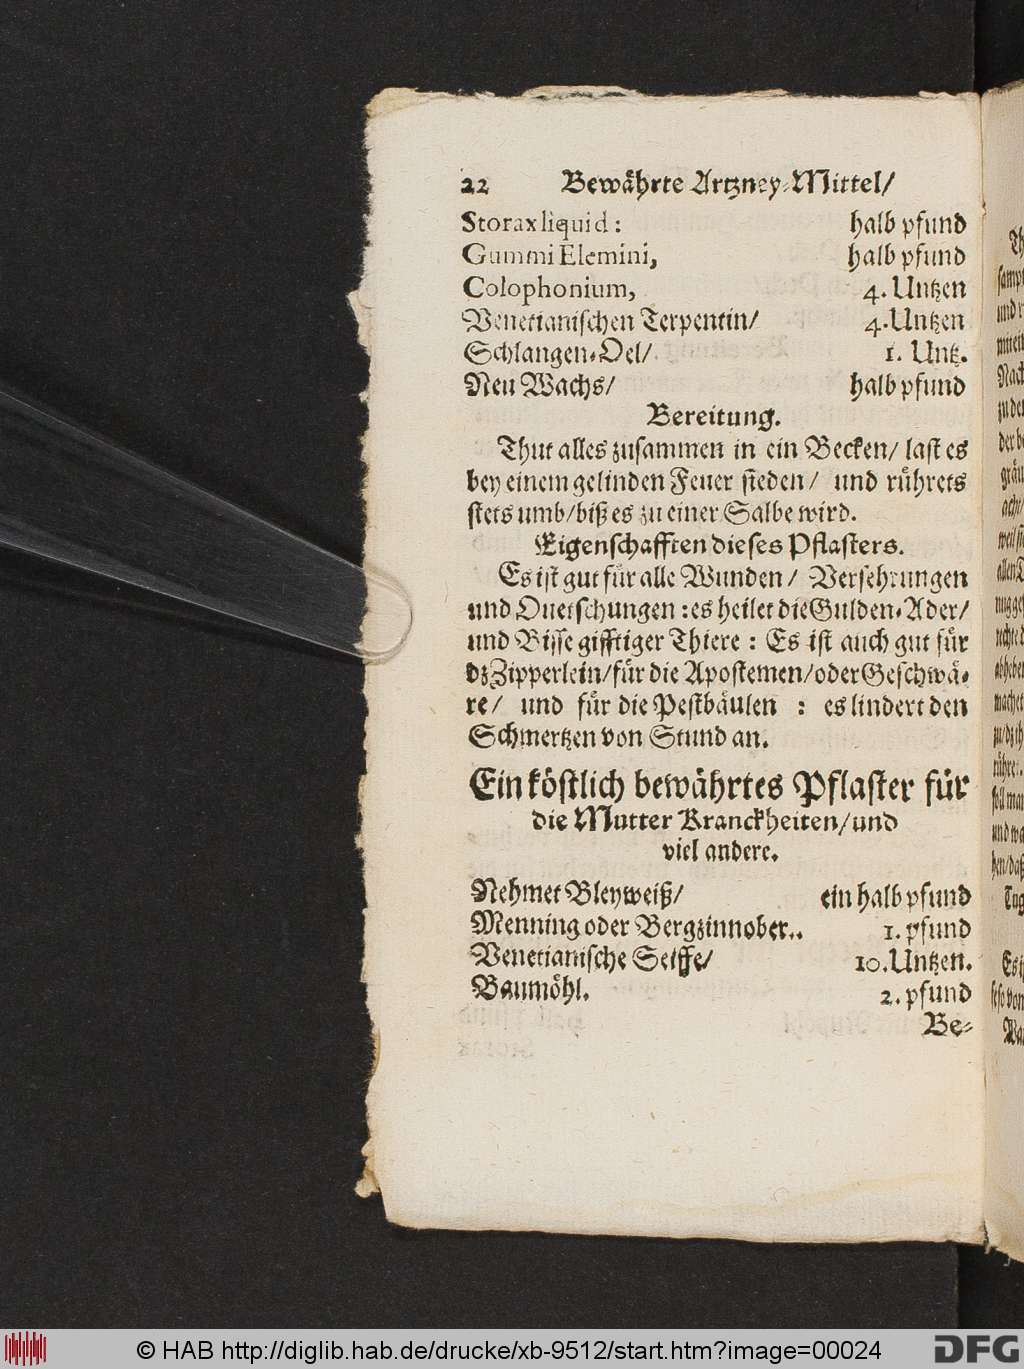 22 Bewährte Artzney-Mittel/
Storax liquid: halb pfund
Gummi Elemini, halb pfund
Colophonium, 4. Untzen
Venetianischen Terpentin/ 4. Untzen
Schlangen-Oel/ 1. Untz.
Neu Wachs/ halb pfund
Bereitung.
Thut alles zusammen in ein Becken/ last es
bey einem gelinden Feuer sieden/ und rührets
stets umb/ biß es zu einer Salbe wird.
Eigenschafften dieses Pflasters.
Es ist gut für alle Wunden/ Versehrungen
und Quetschungen: es heilet die Gulden-Ader/
und Bisse gifftiger Thiere: Es ist auch gut für
dz Zipperlein/ für die Apostemen/ oder Geschwä-
re/ und für die Pestbäulen : es lindert den
Schmertzen von Stund an.
Ein köstlich bewährtes Pflaster für
die Mutter Kranckheiten/ und
viel andere.
Nehmet Bleyweiß/ ein halb pfund
Menning oder Bergzinnober.. 1. pfund
Venetianische Seiffe/ 10. Untzen.
Baumöhl. 2. pfund
Be-
© HAB http://diglib.hab.de/drucke/xb-9512/start.htm?image=00024
DFG